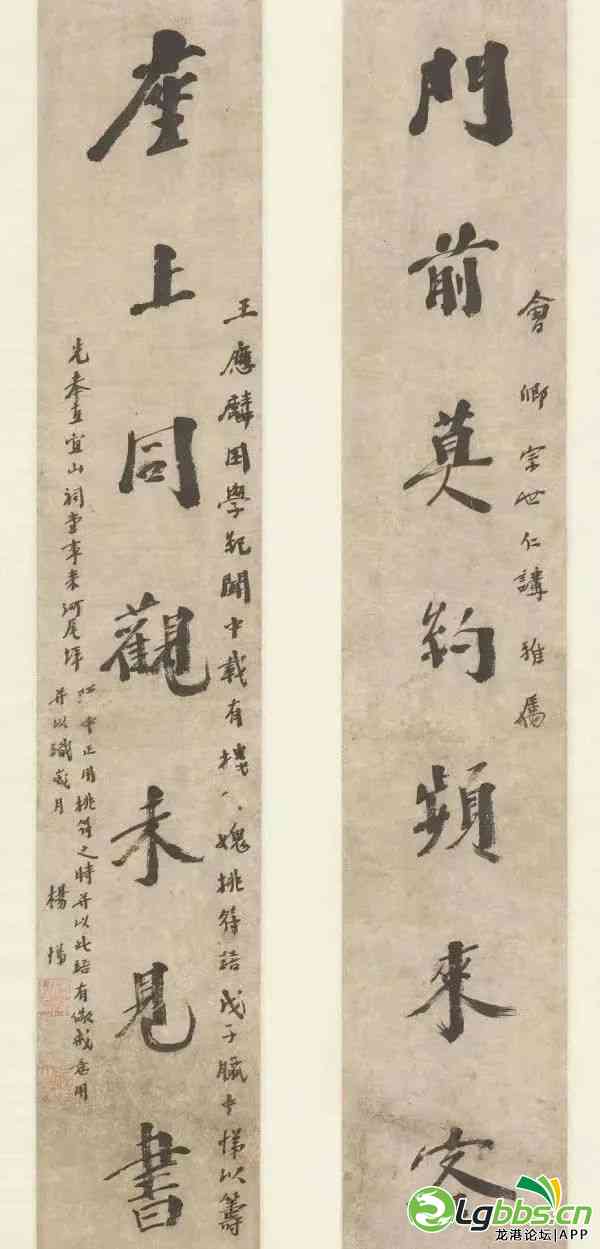 門前莫約頻來客
會卿宗世仁講雅属
座上同觀未見書
王應麟困學紀聞中載有 挑符語戊子臘中 以籌
光奉直宜山祠堂事来河尾垟
中正用挑符之時并以此語有儆戒意用
并以識歲月
楊
Lgbbs.cn
龙港论坛|APP